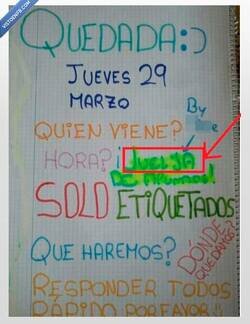 QUEDADA:)
JUEVES 29
MARZO
By
QUIEN VIENE?
HORA? ¡JUELJA
DE
SOLO ETIQUETADOS
DÓNDE
QUEDAMOS?
QUE HAREMOS?
RESPONDER TODOS
RÁPIDO POR FAVOR!!